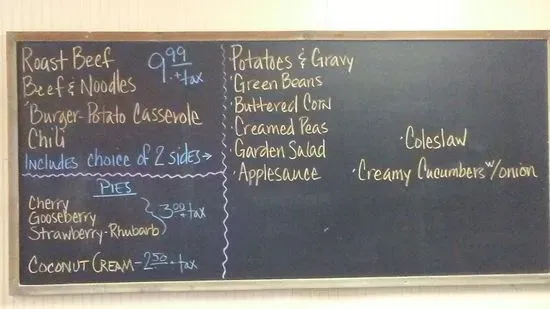 Roast Beef 9.99 + tax
Beef & Noodles
Burger-Potato Casserole
Chili
Includes choice of 2 sides→
PIES
Cherry
Gooseberry 3.00 + tax
Strawberry-Rhubarb
Coconut Cream - 2.50 + tax
Potatoes & Gravy
·Green Beans
·Buttered Corn
·Creamed Peas
·Garden Salad
·Applesauce
·Coleslaw
·Creamy Cucumbers w/onion